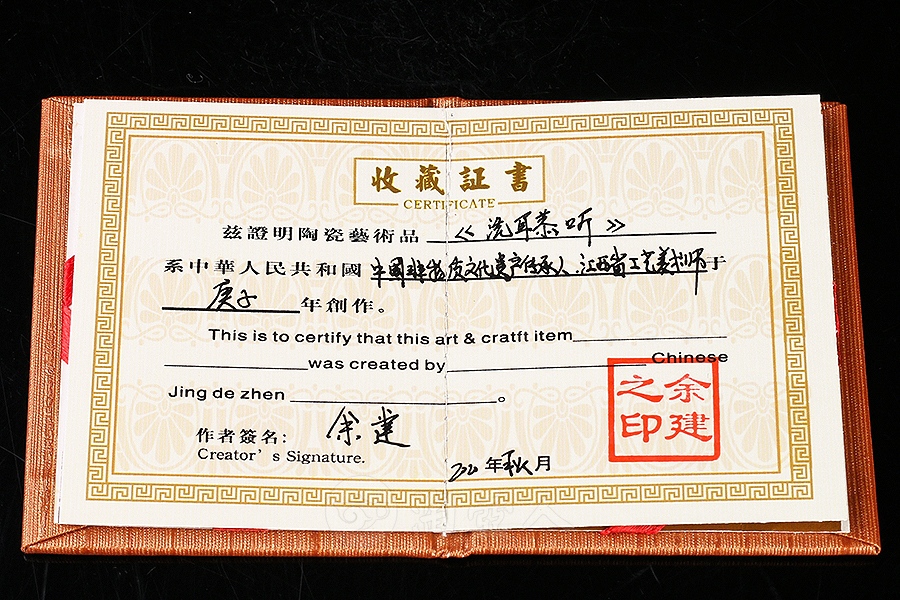 收藏証書
CERTIFICATE
茲證明陶瓷藝術品《洗耳恭听》
系中華人民共和國中国非物质文化遗产传承人、江西省工艺美术师于
庚子年創作。
This is to certify that this art & cratft item
was created by Chinese
Jing de zhen 。
作者簽名: 余建
Creator's Signature.
年秋月
余建
之印